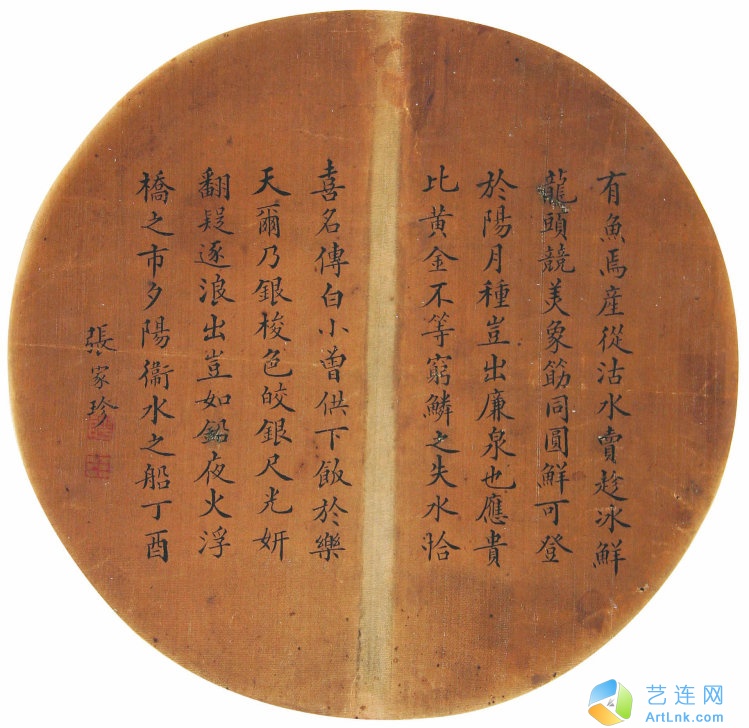 有魚焉產從沽水賣趁冰鮮
龍頭競美象筯同圓鮮可登
於陽月種豈出廉泉也應貴
比黃金不等窮鱗之失水恰
喜名傳白小曾供下飯於樂
天爾乃銀梭色皎銀尺光妍
翻疑逐浪出豈如鉛夜火浮
橋之市夕陽衞水之船丁酉
張家珍
艺连网
ArtLnk.com